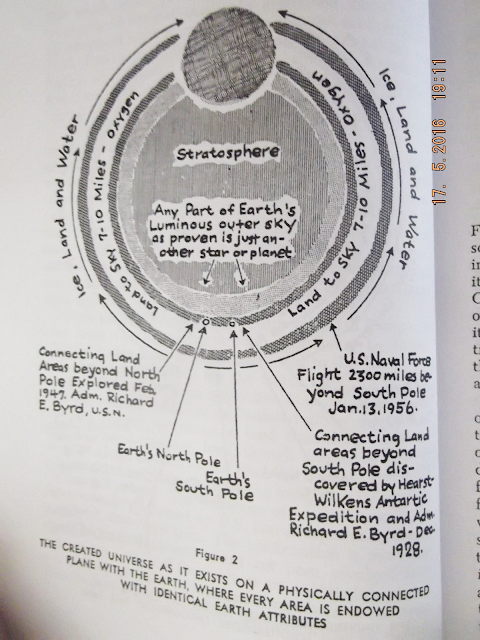 17. 5.2016 19:11
Ice, Land and Water
Land to SKY 7-10 Miles - Oxygen
Land to SKY 7-10 Miles - Oxygen
Ice, Land and Water
Stratosphere
Any Part of Earth's
Luminous outer sky
as proven is just an-
other star or planet
Connecting Land
Areas beyond North
Pole Explored Feb.
1947. Adm. Richard
E. Byrd, U.S.N.
Earth's North Pole
Earth's
South Pole
U.S. Naval Force
Flight 2300 miles be-
yond South Pole
Jan.13,1956.
Connecting Land
areas beyond
South Pole dis-
covered by Hearst-
Wilkens Antartic
Expedition and Adm.
Richard E. Byrd-Dec.
1928.
Figure 2
THE CREATED UNIVERSE AS IT EXISTS ON A PHYSICALLY CONNECTED
PLANE WITH THE EARTH, WHERE EVERY AREA IS ENDOWED
WITH IDENTICAL EARTH ATTRIBUTES